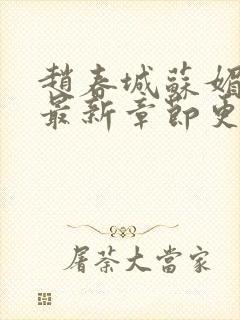 趙春城蘇媚
最新章節更
屠荼大當家